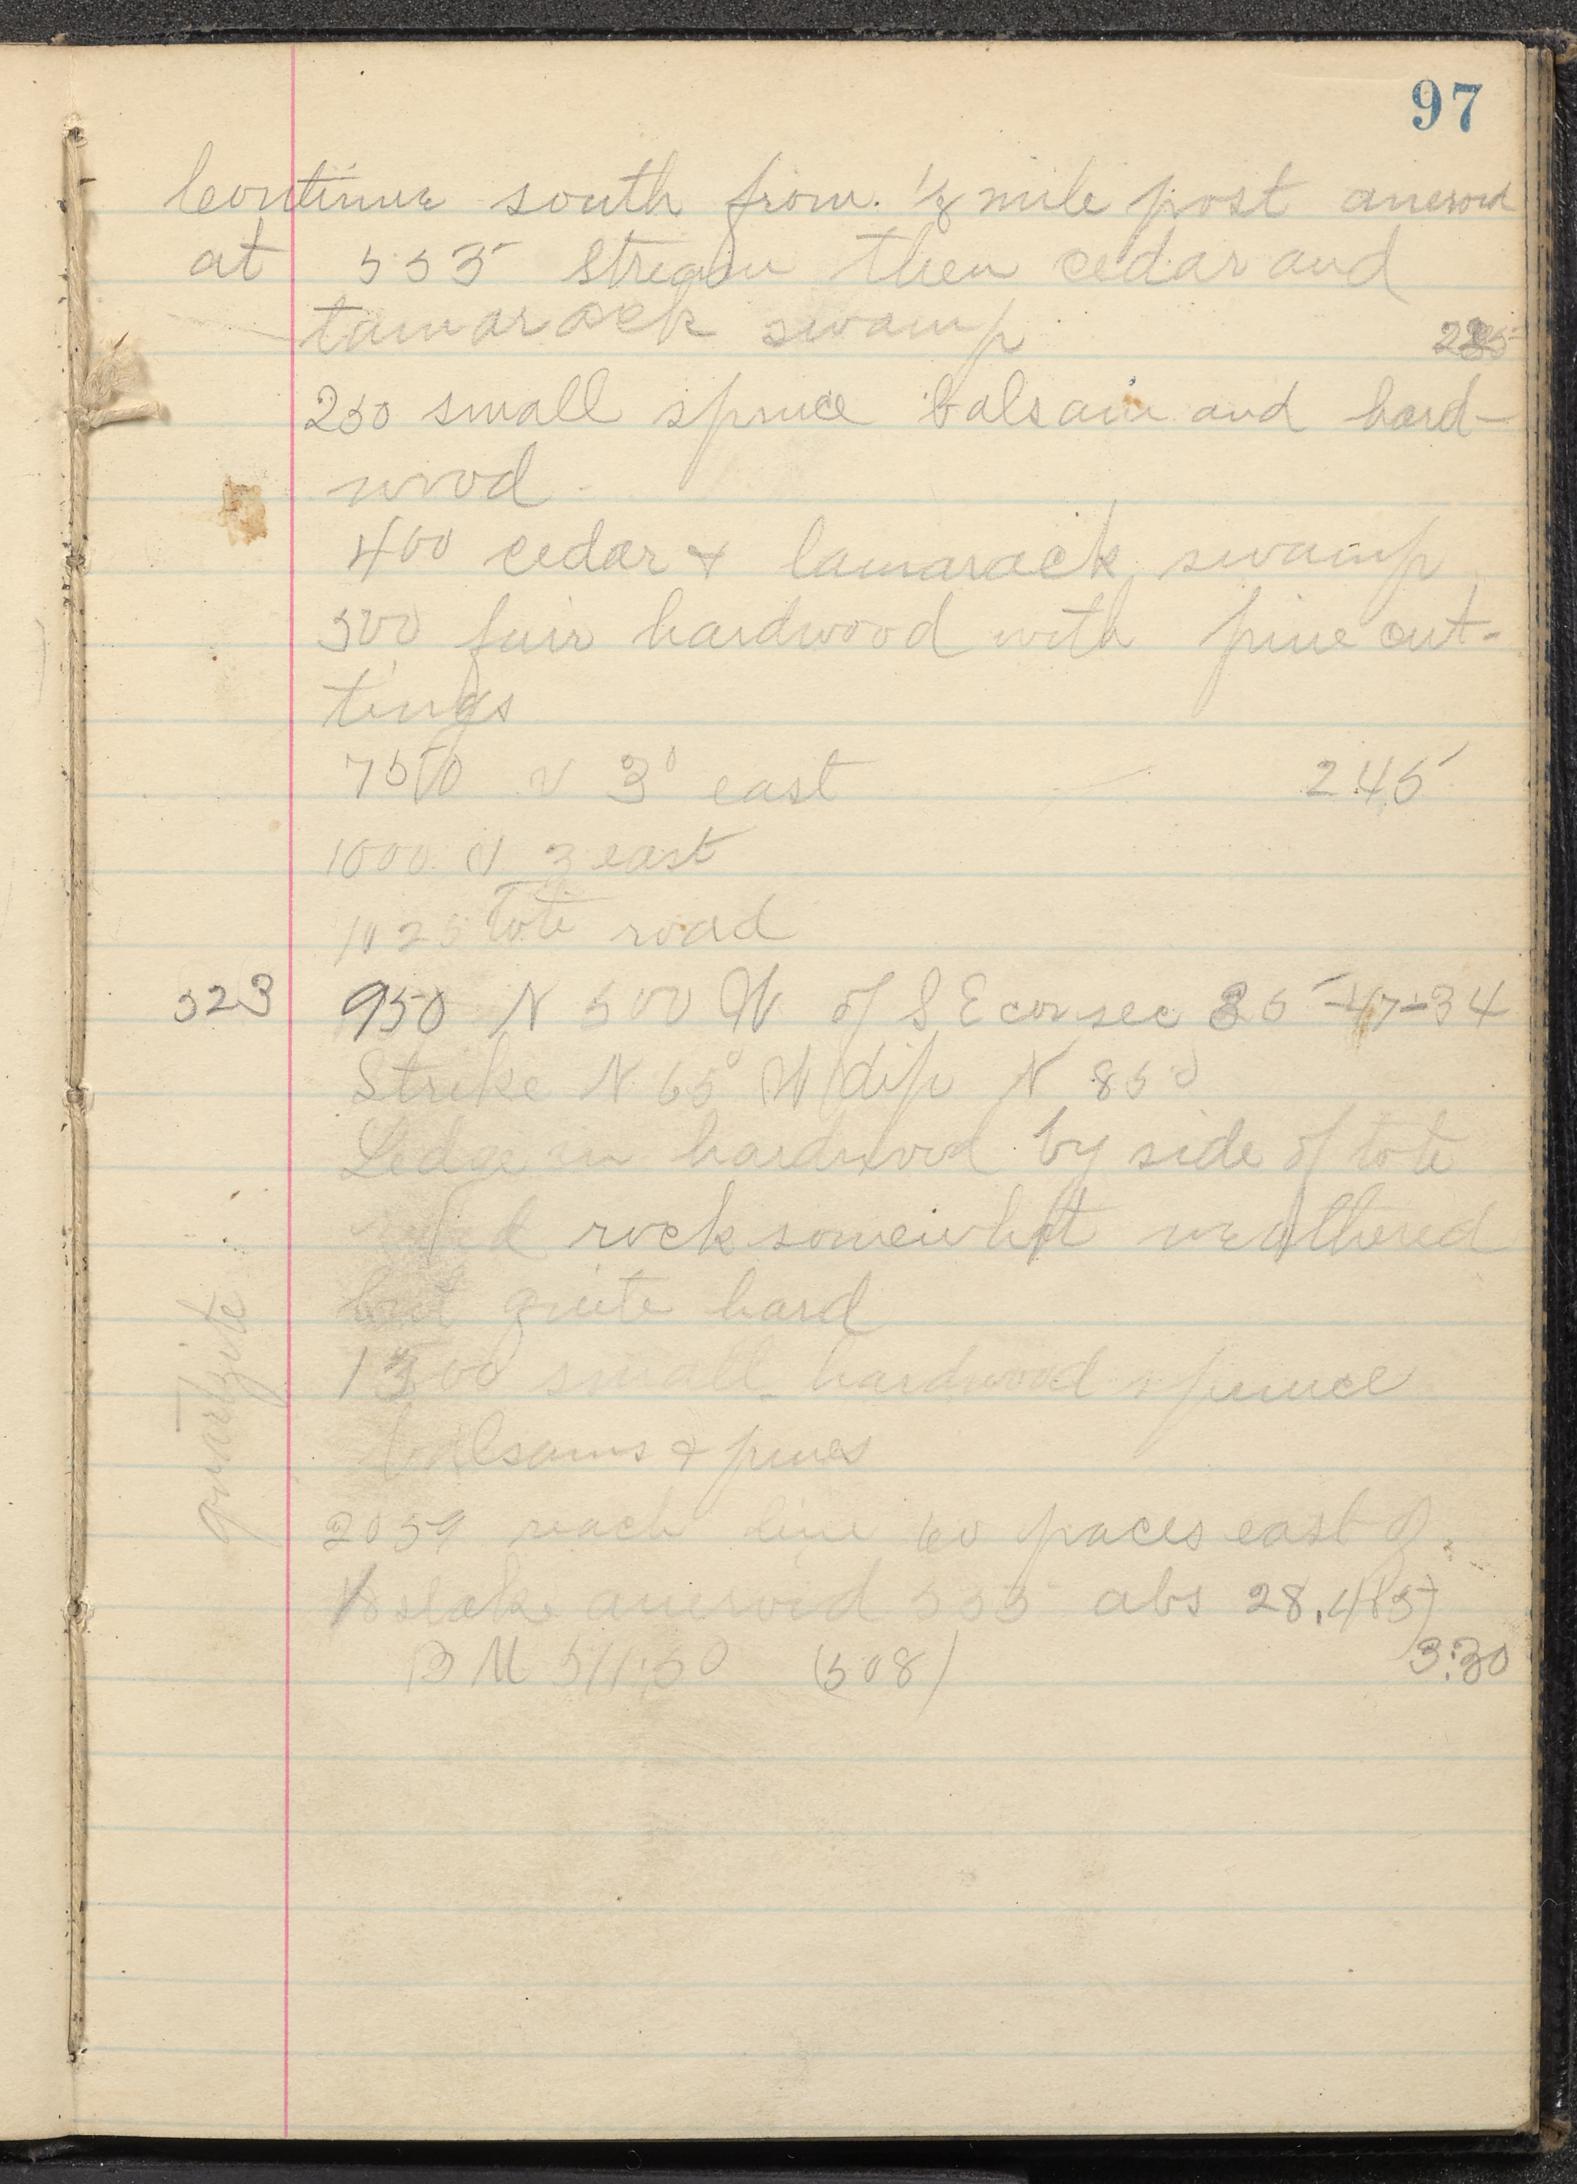 97
Continue south from ½ mile post aneroid
at 555 stream then cedar and
tamarack swamp
250 small spruce balsam and hard-
wood
400 cedar & tamarack swamp
500 fair hardwood with pine cut-
tings
750 v 3° east 245
1000 v 3 east
1025 Tote road
523 950 N 500 W of S E cor sec 35-47-34
Strike N 65° W dip N 85°
Ledge in hardwood by side of tote
rock somewhat weathered
but quite hard
quartzite
1300 small hardwood spruce
balsams & pines
2059 reach line 60 paces east of
aneroid 555 abs 28.485
B M 511.50 (508) 3:30